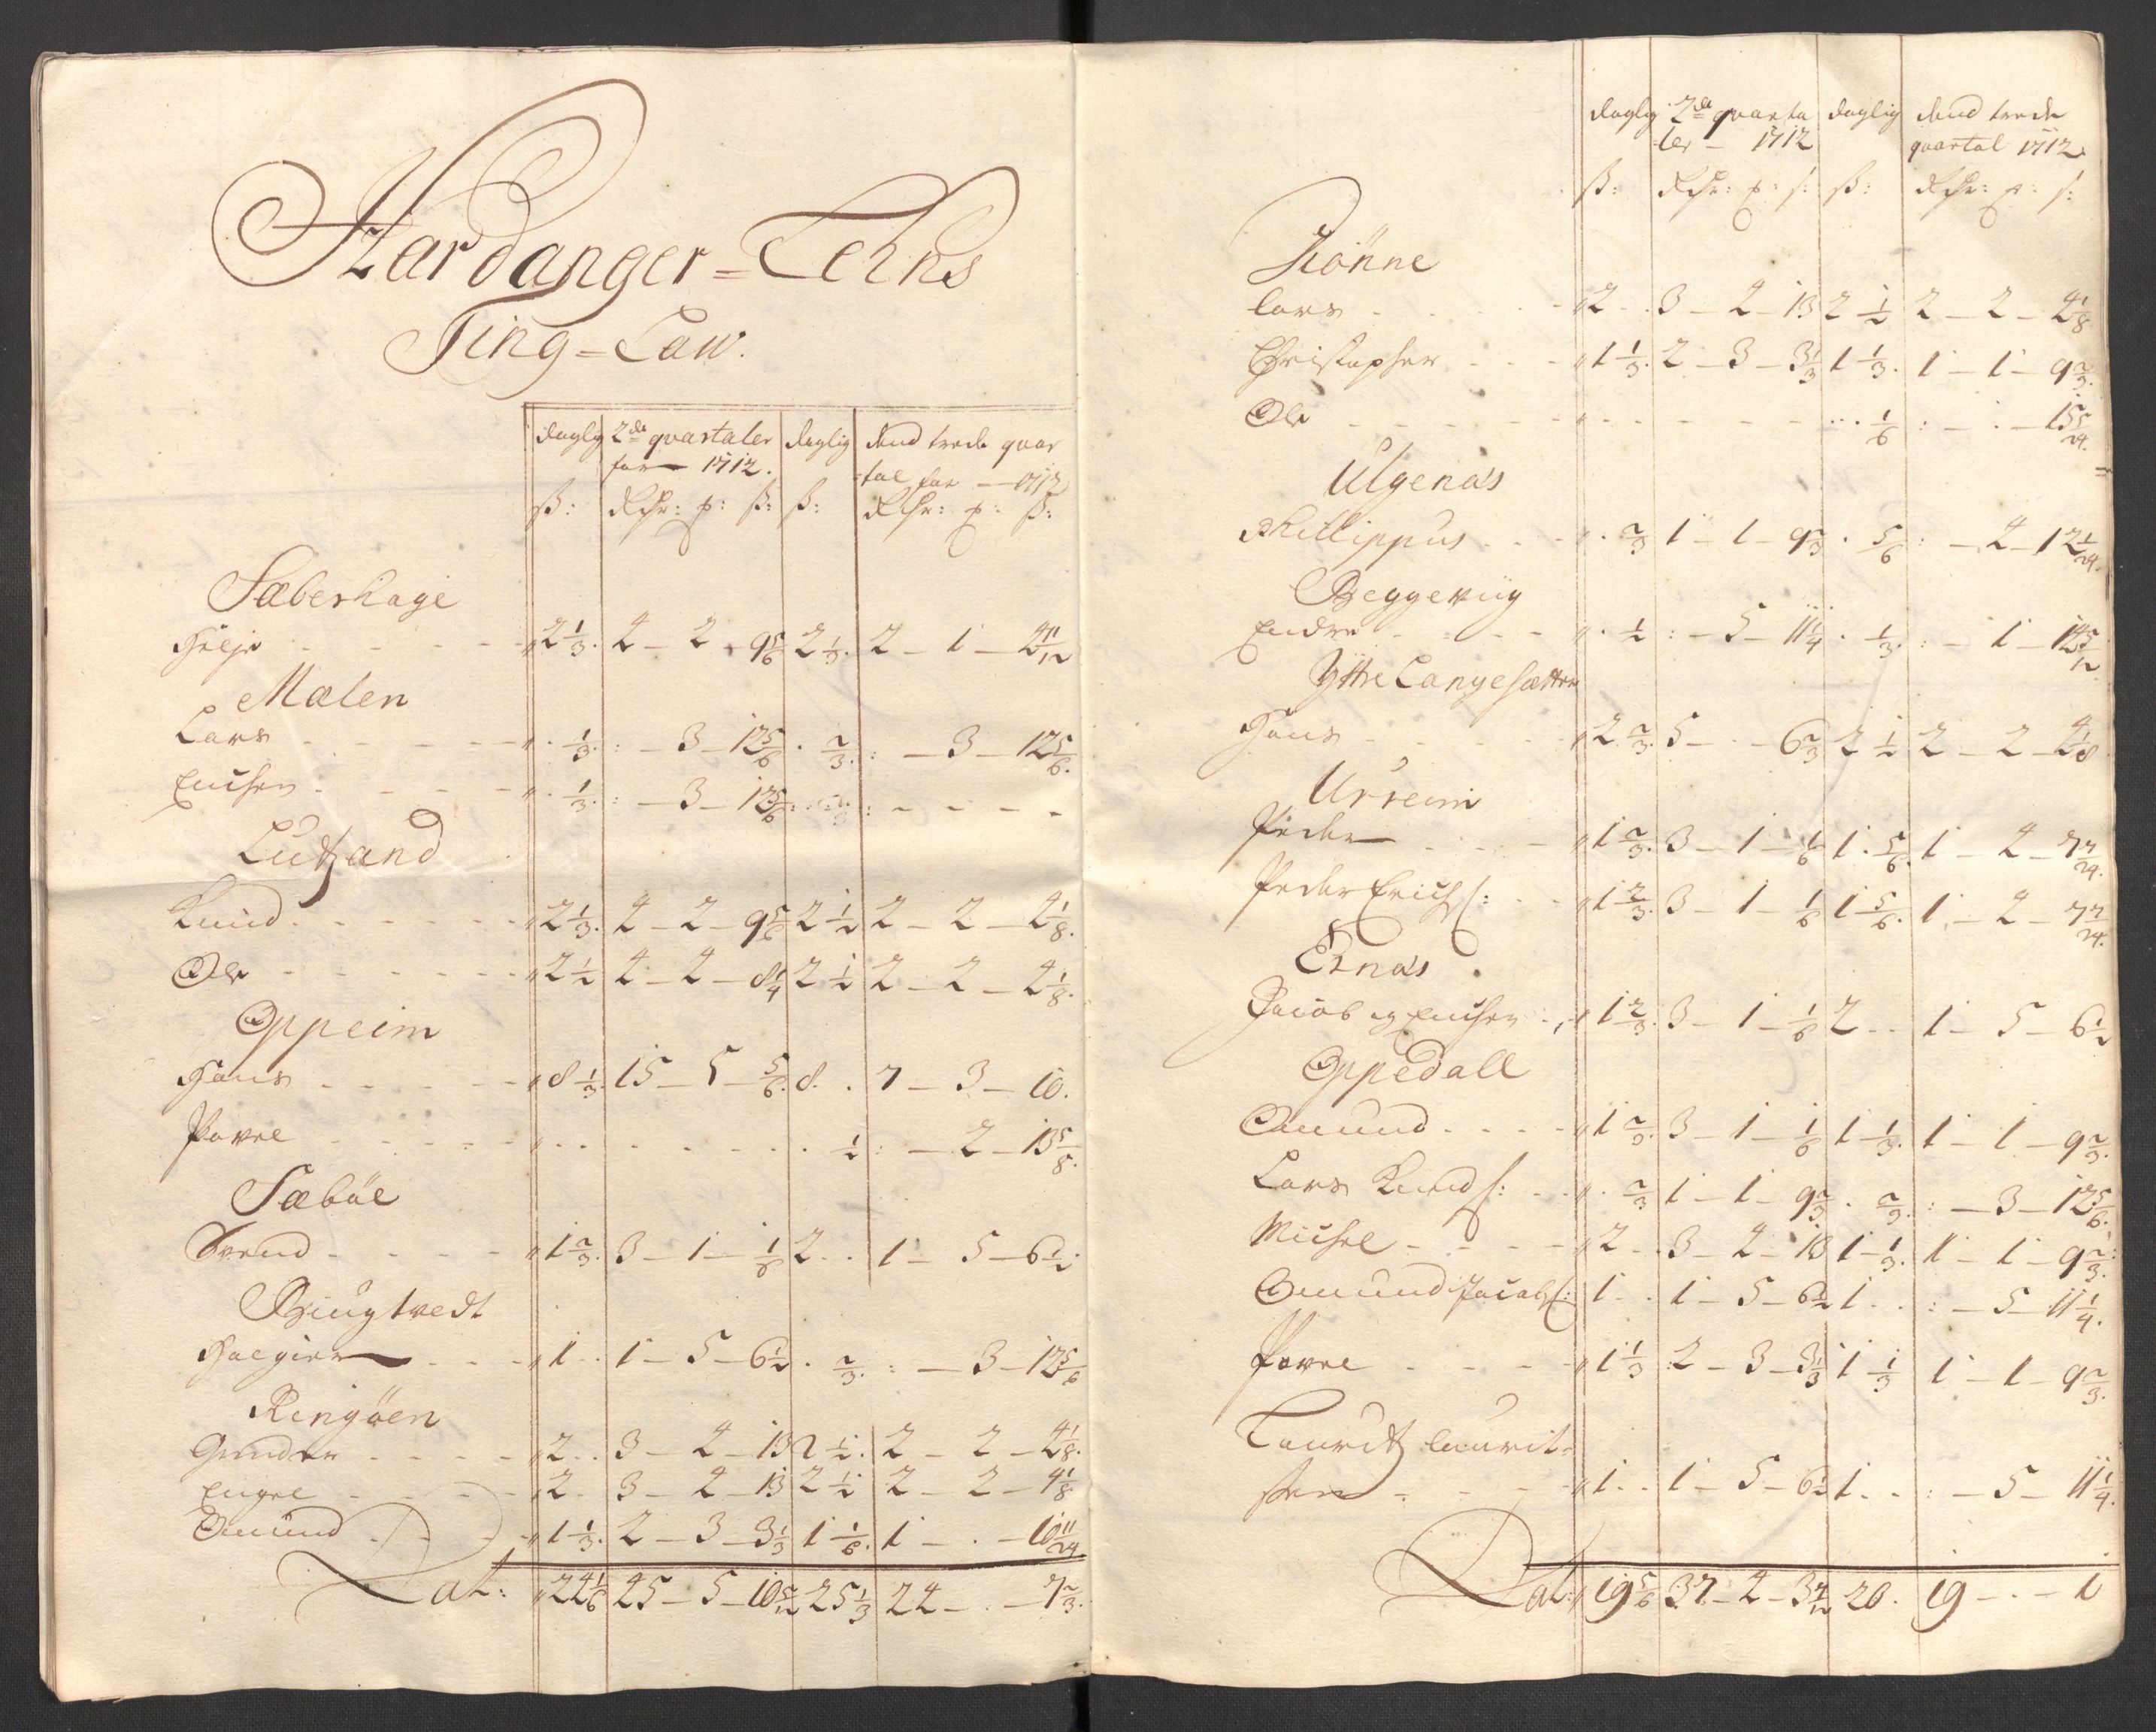 Hardanger=Lehns
Ting=Law.
daglig 2de qvartaler daglig dend trede qvar
for 1712. tal for — 1712
ß: Rdr: p: ß: ß: Rdr: p: ß:
Sæbershage
Helje - - - - 2 1/3. 4 - 2 - 9 5/6 2 1/3. 2 - 1 - 4 11/12
Mælen
Lars - - - - . 1/3. : - 3 - 12 5/6 . 2/3. : - 3 - 12 5/6.
- - - - . 1/3. : - 3 - 12 5/6 : - - - -
Lutzand
Knud - - - - 2 1/3. 4 - 2 - 9 5/6 2 1/2 2 - 2 - 4 1/8.
Ole - - - - 2 1/2 4 - 4 - 8 1/4 2 1/2 2 - 2 - 4 1/8.
Oppeim
Hans - - - - 8 1/3. 15 - 5 - 5/6. 8. . 7 - 3 - 10.
Povel - - - - . 1/2 : - 2 - 13 5/8.
Sæbøe
Svend - - - - 1 2/3. 3 - 1 - 1/6 2 . . 1 - 5 - 6 1/2.
Bugtvedt
Halgier - - - 1 . . 1 - 5 - 6 1/2 . 2/3. : - 3 - 12 5/6
Ringøen
Gunder - - - - 2 . . 3 - 4 - 13 2 1/2. 2 - 2 - 4 1/8.
Engel - - - - 2. 3 - 4 - 13 2 1/2 2 - 2 - 4 1/8
Omund - - - 1 1/3. 2 - 3 - 3 1/3 1 1/6. 1 - . - 10 11/24
Lat: 22 1/6 45 - 5 - 10 5/12 25 1/3 22 - . - 7 2/3.
daglig 2de qvarta daglig dend trede
ler - 1712 qvartal 1712
ß: Rdr: p: ß: ß: Rdr: p: ß:
Kiønne
Lars - - - - 2 . . 3 - 4 - 13 2 1/2 2 - 2 - 4 1/8
Christopher - - - 1 1/3. 2 - 3 - 3 1/3 1 1/3. 1 - 1 - 9 2/3.
Ole - - - - - - - . 1/6 : - . - 15 5/24.
Ulgenæs
Phillippus - - - . 2/3 1 - 1 - 9 2/3 . 5/6 : - 4 - 12 1/24.
Beggeviig
Endre - - - - . 1/2 : - 5 - 11 1/4 . 1/3. : - 1 - 14 5/12
Ytre Langesætter
Hans - - - - 2 2/3. 5 - . - 6 2/3 2 1/2 2 - 2 - 4 1/8
Urreim
Peder - - - 1 2/3. 3 - 1 - 1/6 1. 5/6. 1 - 4 - 7 7/24.
Peder Erichs: - - 1 2/3. 3 - 1 - 1/6 1 5/6. 1 - 4 - 7 7/24.
Eknæs
Jacob og - 1 2/3. 3 - 1 - 1/6 2 . . 1 - 5 - 6 1/2
Oppedall
Omund - - - - 1 2/3. 3 - 1 - 1/6 1 1/3. 1 - 1 - 9 2/3.
Lars Knuds: - - . 2/3 1 - 1 - 9 2/3 . 2/3. : - 3 - 12 5/6.
Michel - - - - 2 . . 3 - 4 - 13 1 1/3. 1 - 1 - 9 2/3.
Omund Jacobs: 1 . . 1 - 5 - 6 1/2 1 . . : - 5 - 11 1/4.
Povel - - - - 1 1/3 2 - 3 - 3 1/3 1 1/3 1 - 1 - 9 2/3.
Lauritz laurit=
sen - - - - 1 . . 1 - 5 - 6 1/2 1 . . : - 5 - 11 1/4.
Lat: 19 5/6 37 - 4 - 3 7/12 20. 19 - . - 1